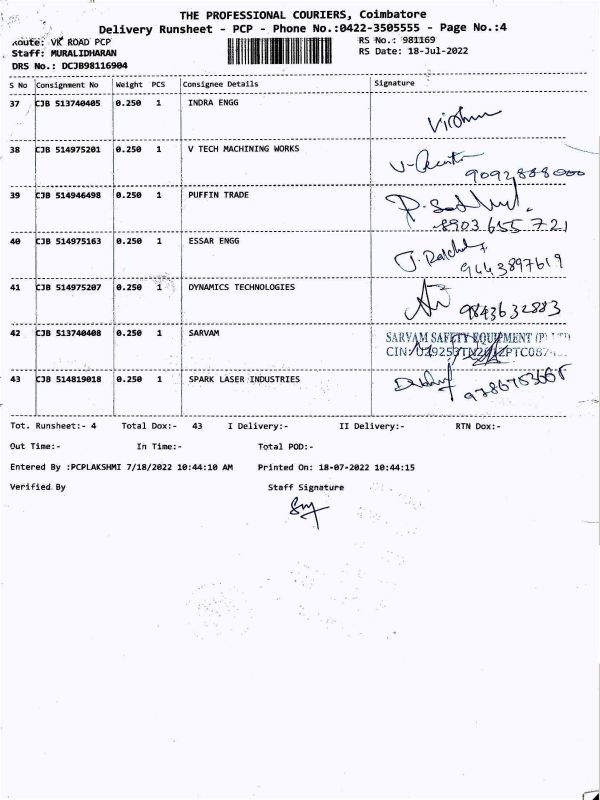 THE PROFESSIONAL COURIERS, Coimbatore
Delivery Runsheet - PCP - Phone No.:0422-3505555 - Page No.:4
Route: VK ROAD PCP
RS No.: 981169
Staff: MURALIDHARAN
RS Date: 18-Jul-2022
DRS No.: DCJB98116904
S No Consignment No Weight PCS Consignee Details Signature
37 CJB 513740405 0.250 1 INDRA ENGG
38 CJB 514975201 0.250 1 V TECH MACHINING WORKS
9092888000
39 CJB 514946498 0.250 1 PUFFIN TRADE
8903 655 721
40 CJB 514975163 0.250 1 ESSAR ENGG
9443897619
41 CJB 514975207 0.250 1 DYNAMICS TECHNOLOGIES
9843632883
42 CJB 513740408 0.250 1 SARVAM
SARVAM SAFETY EQUIPMENT (P) LTD
43 CJB 514819018 0.250 1 SPARK LASER INDUSTRIES
Tot. Runsheet:- 4 Total Dox:- 43 I Delivery:- II Delivery:- RTN Dox:-
Out Time:- In Time:- Total POD:-
Entered By :PCPLAKSHMI 7/18/2022 10:44:10 AM Printed On: 18-07-2022 10:44:15
Verified By Staff Signature